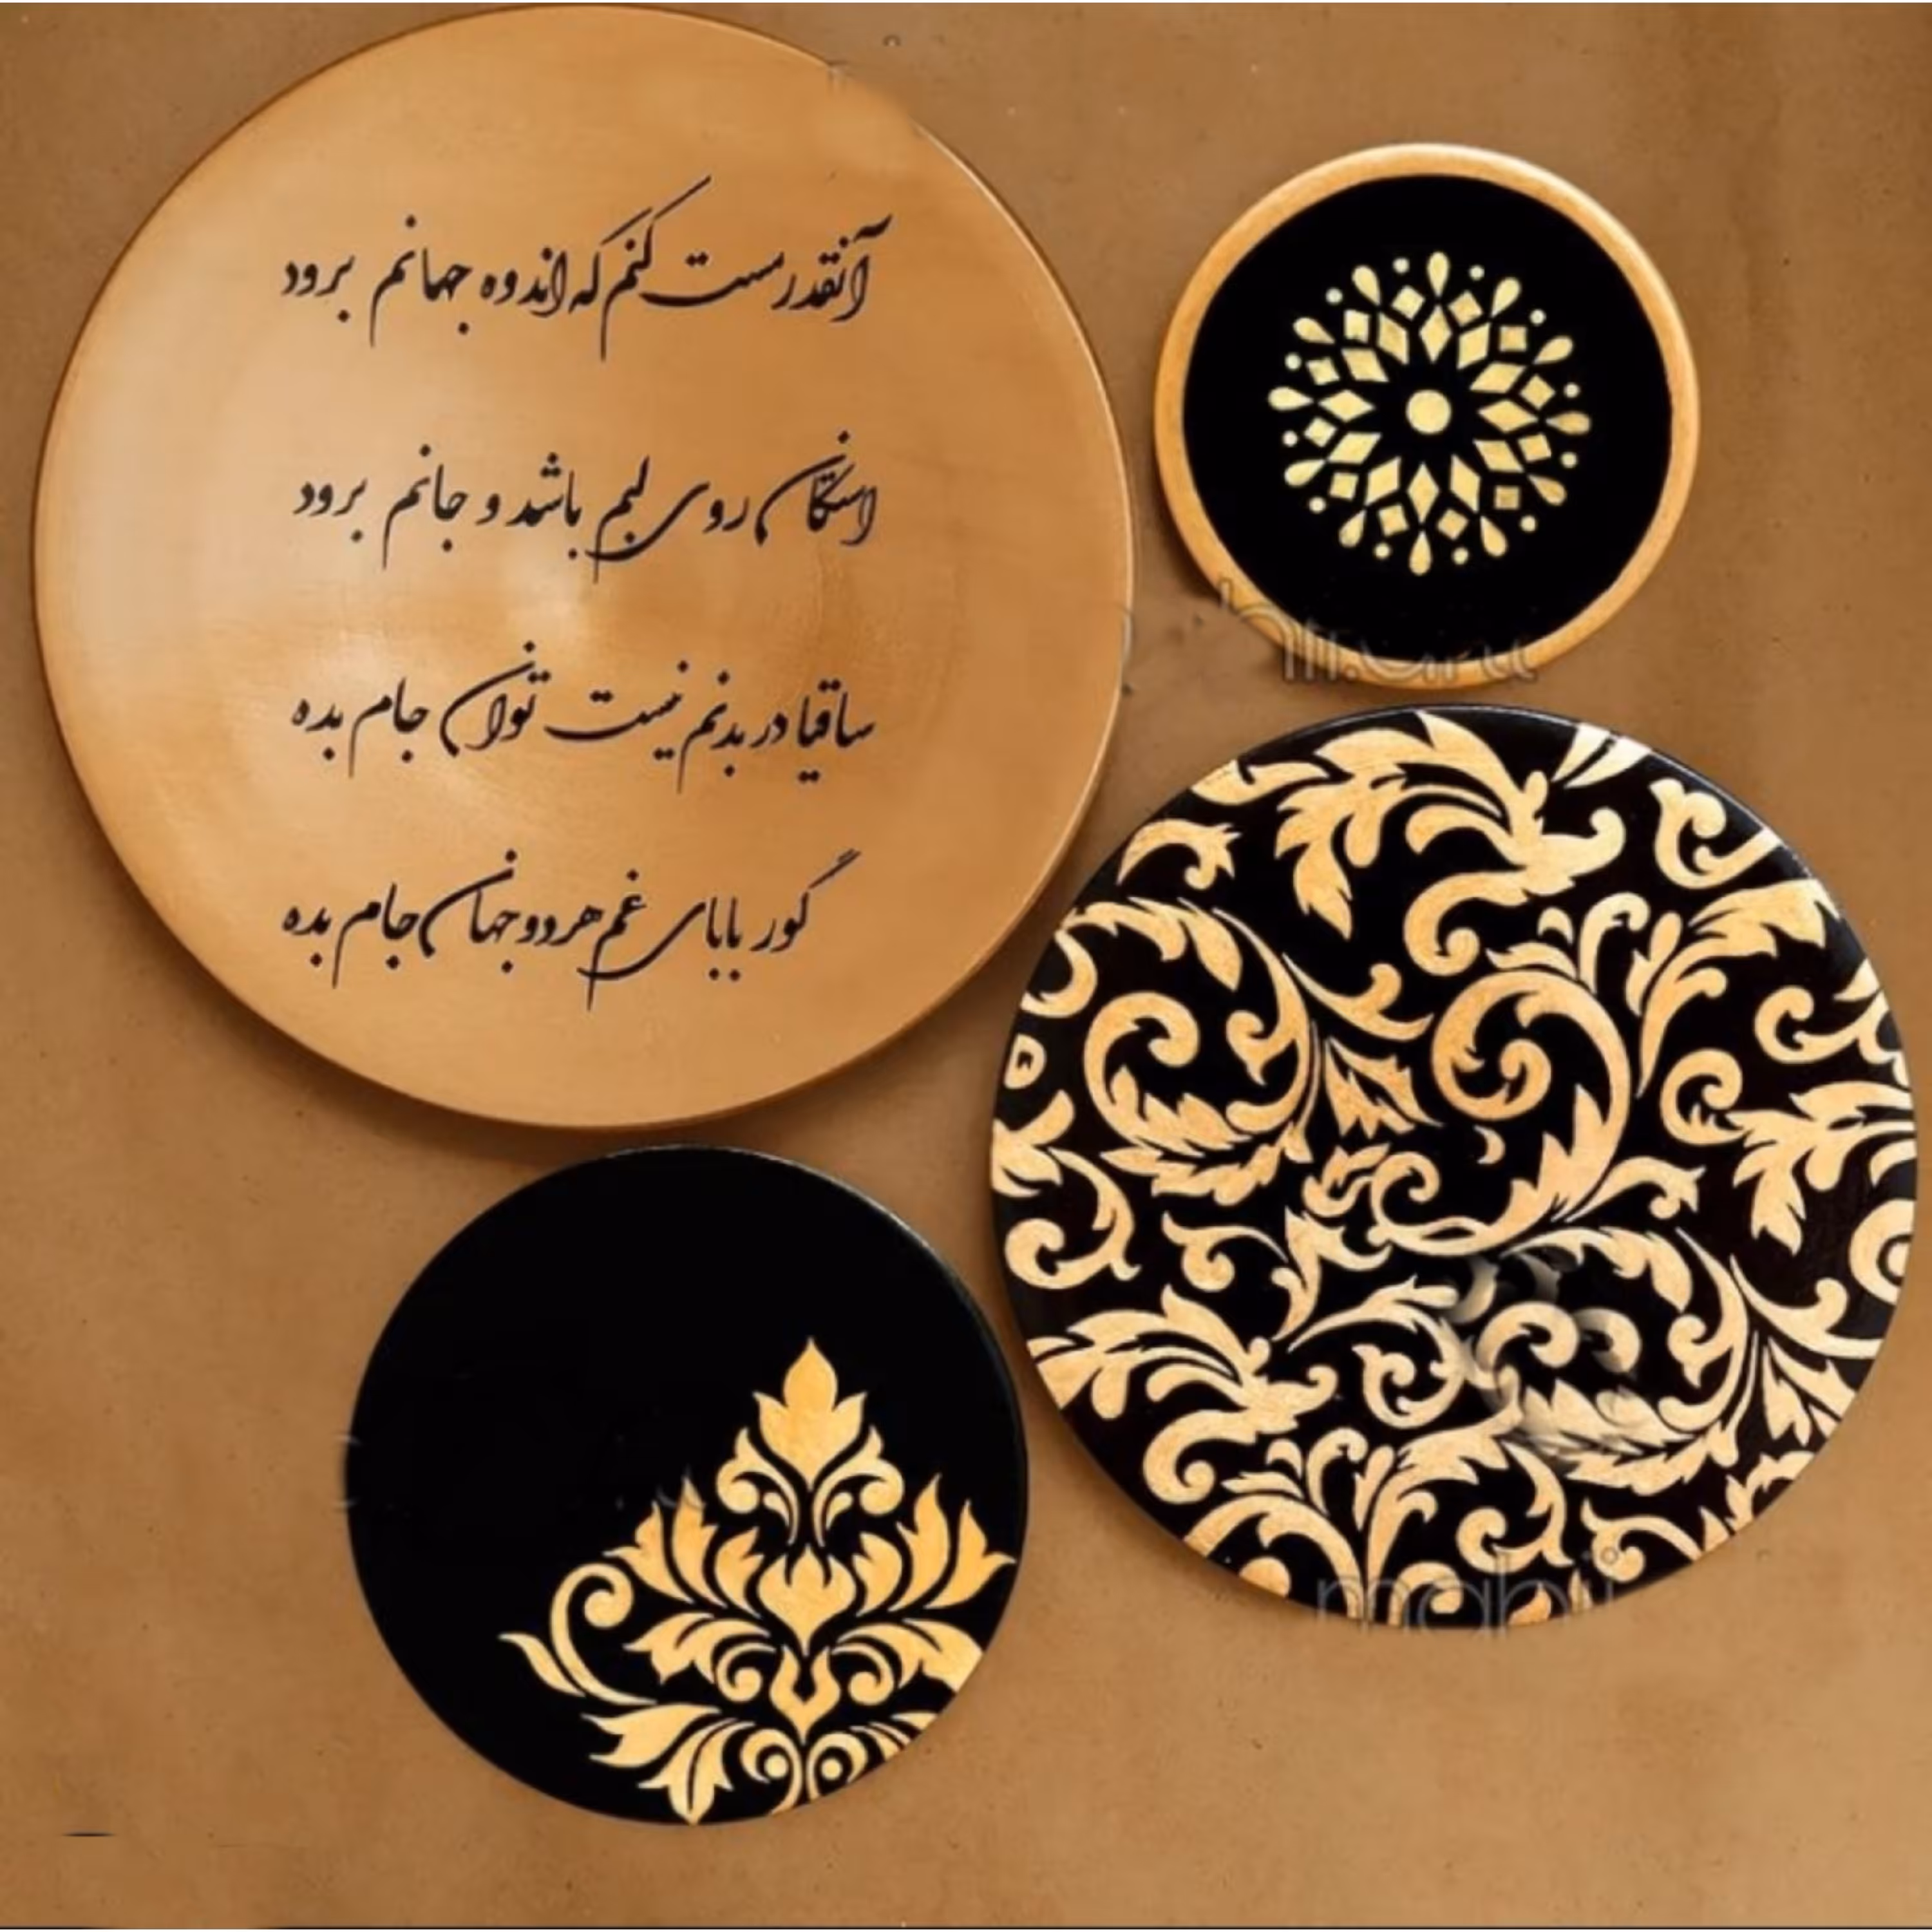 آنقدر مست کنم که اندوه جهانم برود
استکان روی لبم باشد و جانم برود
ساقیا در بدنم نیست توان جام بده
گور بابای غم هر دو جهان جام بده